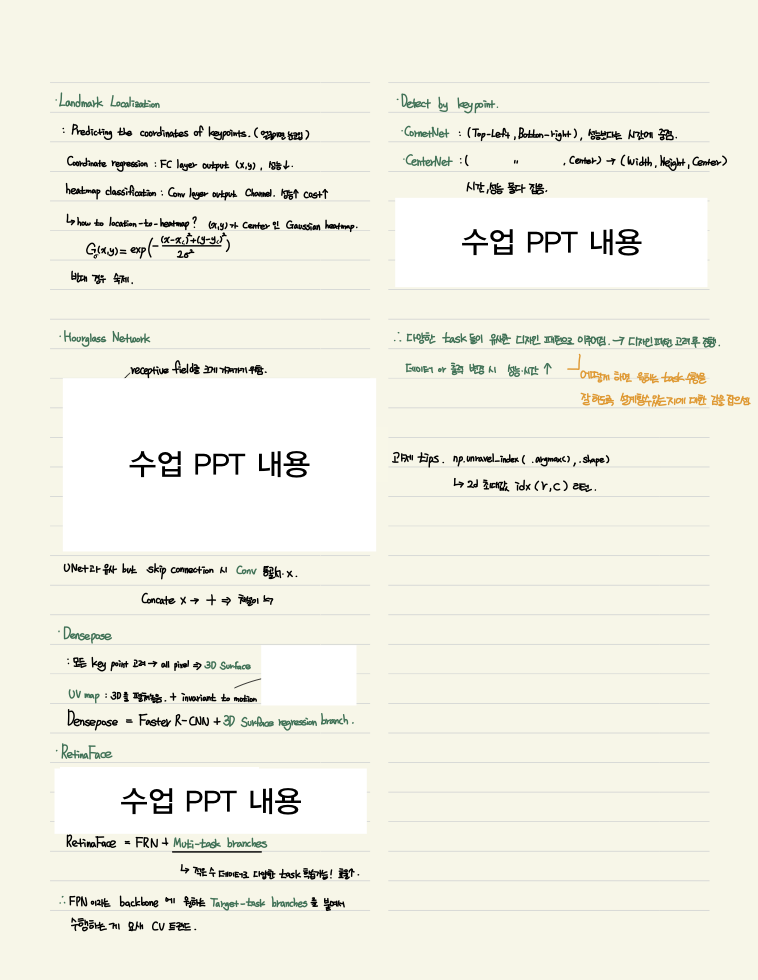 · Landmark Localization
: Predicting the coordinates of keypoints. (
Coordinate regression : FC layer output (x,y), 성능↓.
heatmap classification : Conv layer output Channel. 성능↑ cost↑
↳ how to location-to-heatmap? (x,y)가 Center 인 Gaussian heatmap.
Gσ(x,y) = exp(-((x-xc)²+(y-yc)²)/2σ²)
반대 경우 숙제.
· Hourglass Network
receptive field를 크게 가져가기 위함.
수업 PPT 내용
UNet과 유사 but skip connection 시 Conv 통과시. x.
Concate x → + ⇒
· Densepose
: 모든 key point 고려 → all pixel ⇒ 3D Surface
UV map : 3D를 펼쳐놓음. + invariant to motion
Densepose = Faster R-CNN + 3D Surface regression branch.
· RetinaFace
수업 PPT 내용
RetinaFace = FRN + Muti-task branches
↳ 적은 수 데이터로 다양한 task 학습가능! 효율↑.
∴ FPN 이라는 backbone 에 원하는 Target-task branches 를 붙여서
수행하는 게 요새 CV 트렌드.
· Detect by keypoint.
· CornetNet : (Top-Left, Botton-right), 성능보다는 시간에 중점.
· CenterNet : ( " , Center) → (Width, Height, Center)
시간,성능 둘다 잡음.
수업 PPT 내용
∴ 다양한 task들이 유사한 디자인 패턴으로 이루어짐. → 디자인패턴 고려 후 진행.
데이터 or 출력 변경 시 성능·시간 ↑
어떻게 하면 원하는 task 수행을
잘 하도록 설계할수있는지에 대한 감을 잡으셈
과제 tips. np.unravel_index( .argmax(), .shape)
↳ 2d 최대값 idx (r, c) 리턴.